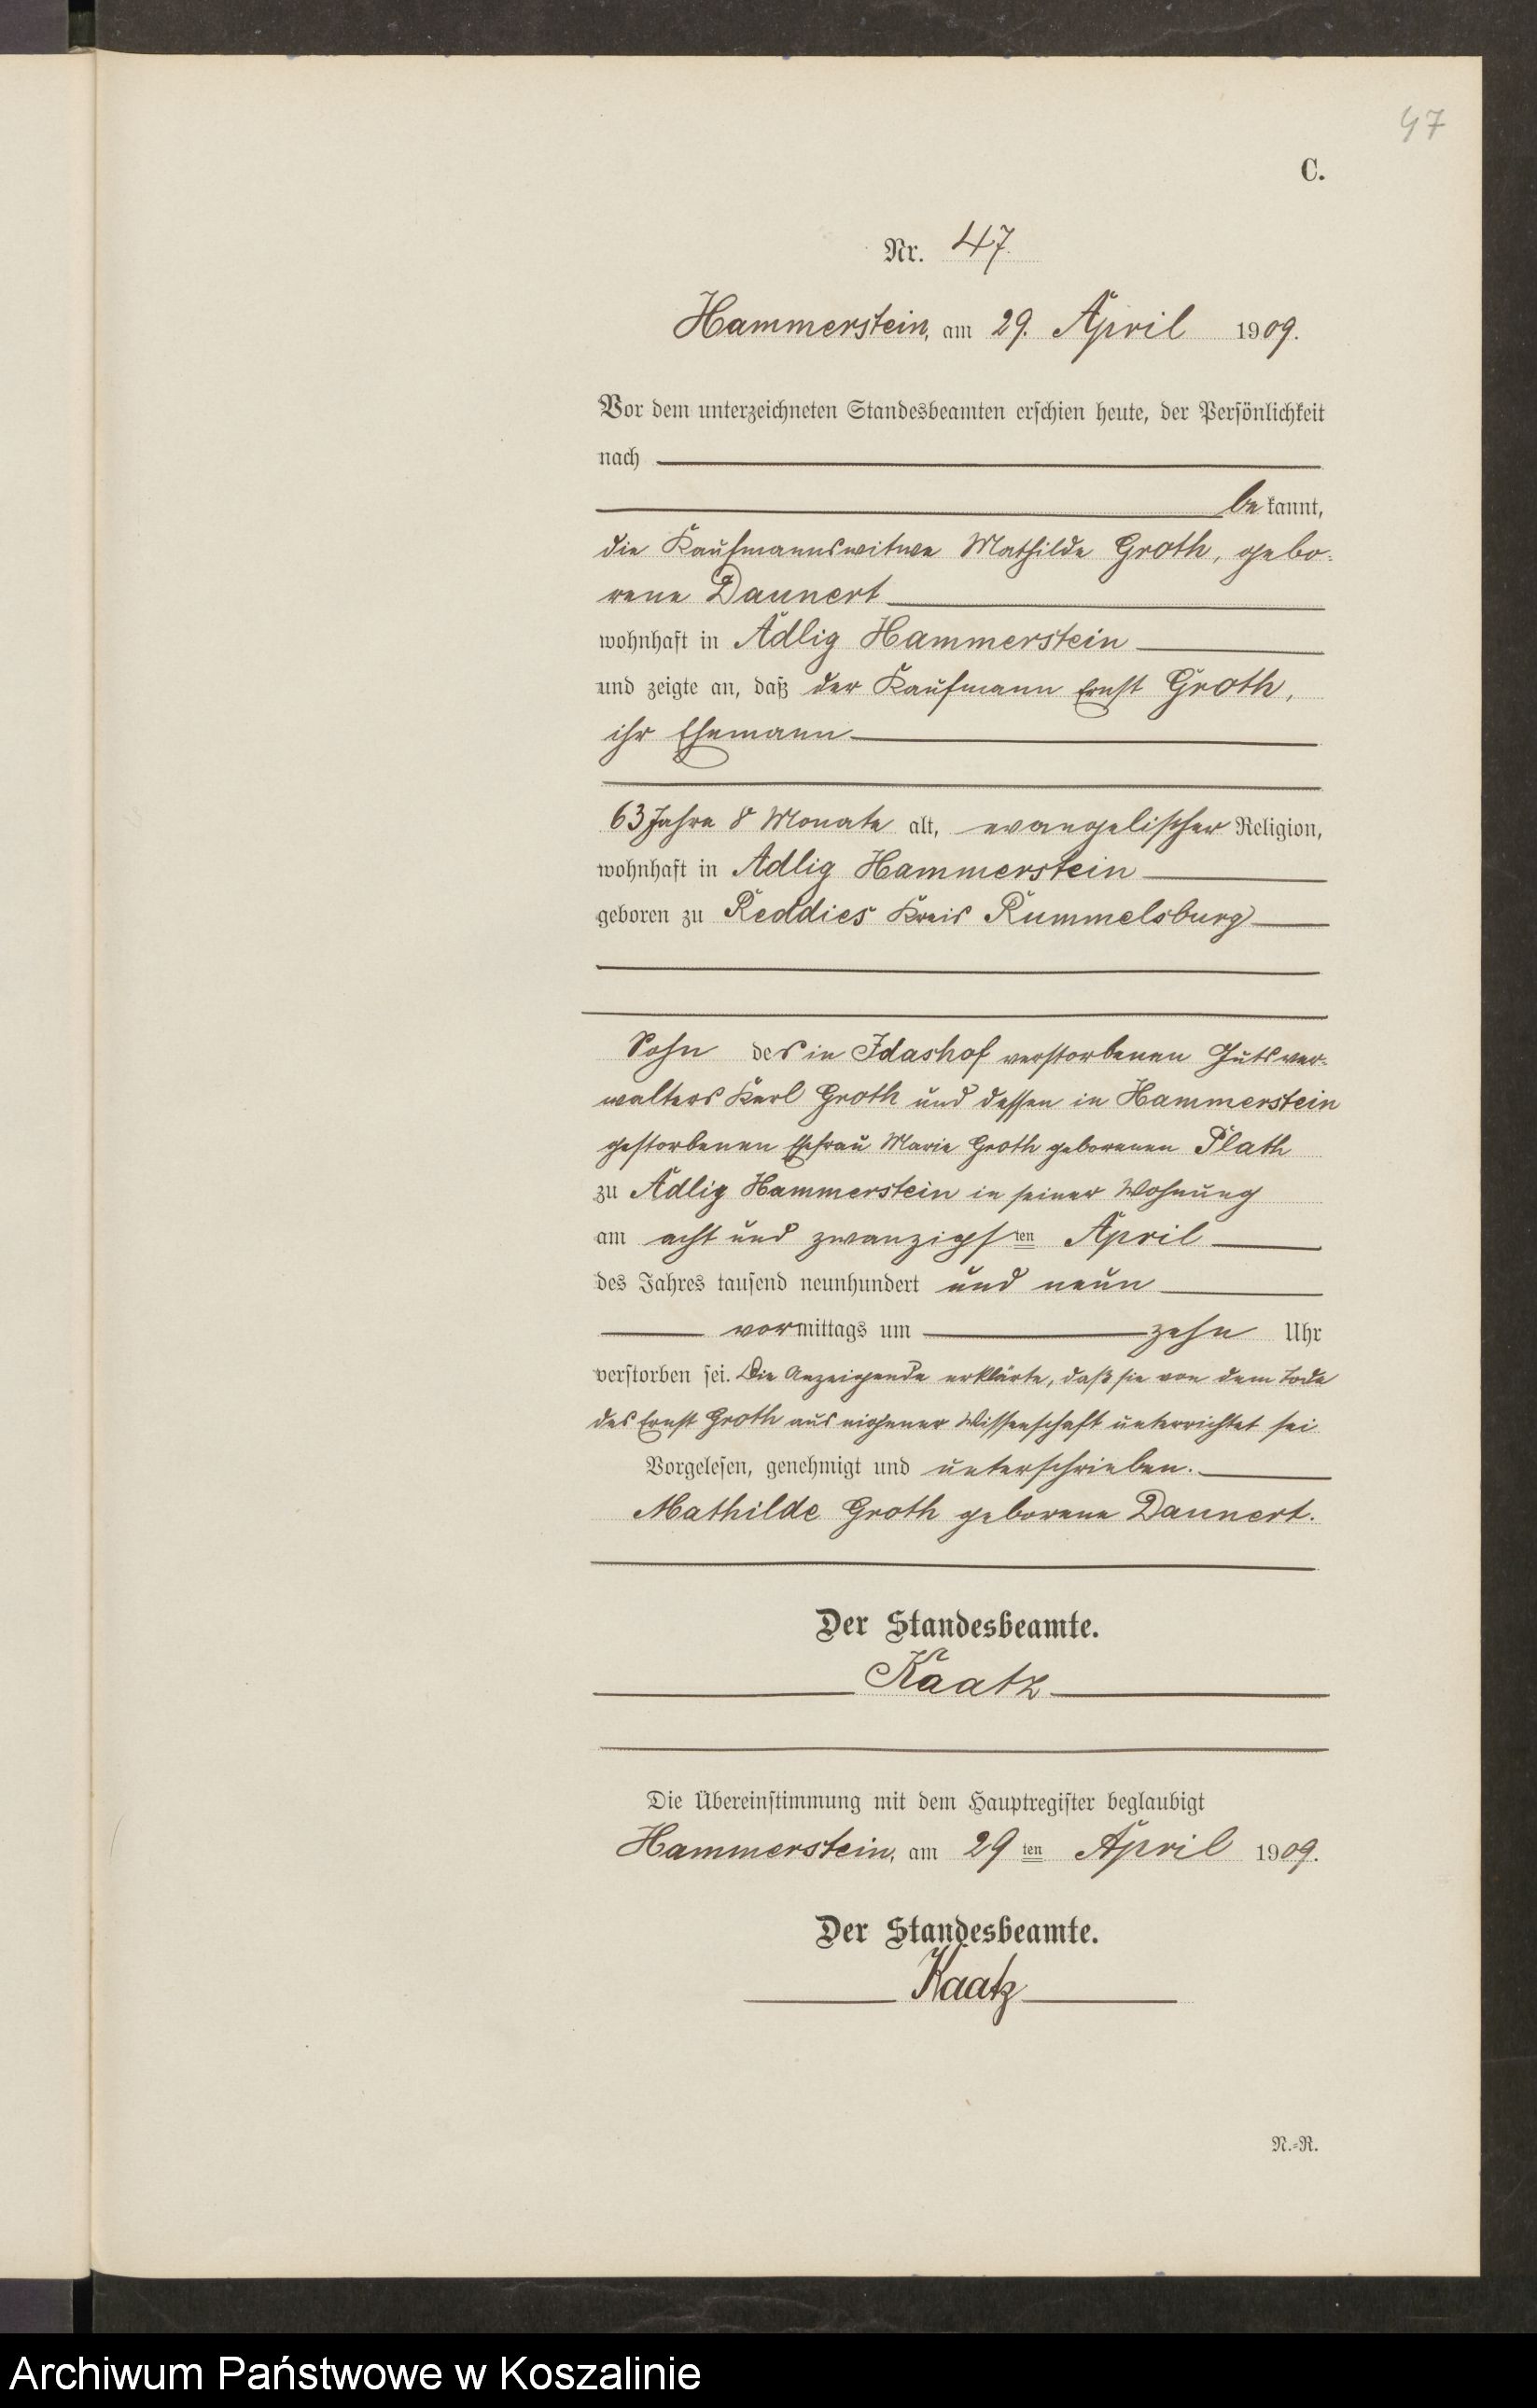 47
C.
Nr. 47.
Hammerstein, am 29. April 1909.
Vor dem unterzeichneten Standesbeamten erschien heute, der Persönlichkeit
nach
bekannt,
die Kaufmannswitwe Mathilde Groth, gebo-
rene Daunert
wohnhaft in Adlig Hammerstein
und zeigte an, daß der Kaufmann Ernst Groth,
ihr Ehemann
63 Jahre 8 Monate alt, evangelischer Religion,
wohnhaft in Adlig Hammerstein
geboren zu Reddies Kreis Rummelsburg
Sohn des in Idashof verstorbenen Gutsver-
walters Karl Groth und dessen in Hammerstein
gestorbenen Ehefrau Marie Groth geborenen Plath
zu Adlig Hammerstein in seiner Wohnung
am acht und zwanzigsten April
des Jahres tausend neunhundert und neun
vormittags um zehn Uhr
verstorben sei. Die Anzeigende erklärte, daß sie von dem Tode
des Ernst Groth aus eigener Wissenschaft unterrichtet sei
Vorgelesen, genehmigt und unterschrieben.
Mathilde Groth geborene Daunert.
Der Standesbeamte.
Kaatz
Die Übereinstimmung mit dem Hauptregister beglaubigt
Hammerstein, am 29ten April 1909.
Der Standesbeamte.
Kaatz
N.-R.
Archiwum Państwowe w Koszalinie